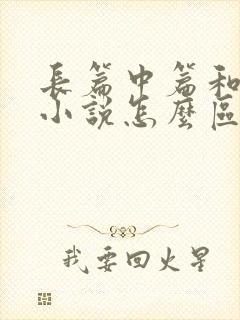 長篇中篇和
小說怎麼區
我要回火星